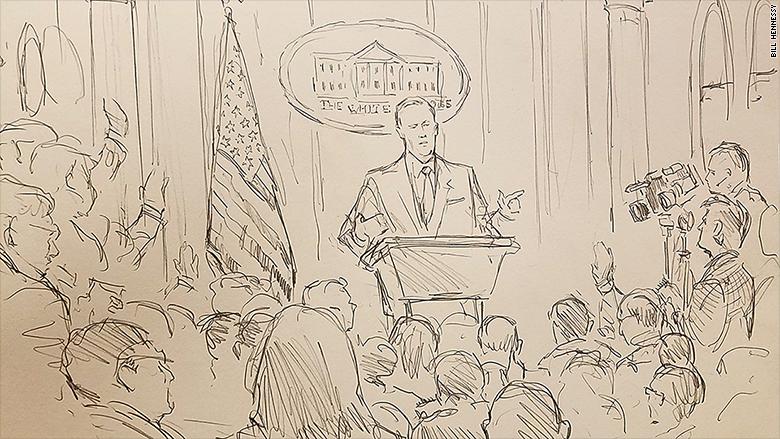 THE WHITE
BILL HENNESSY